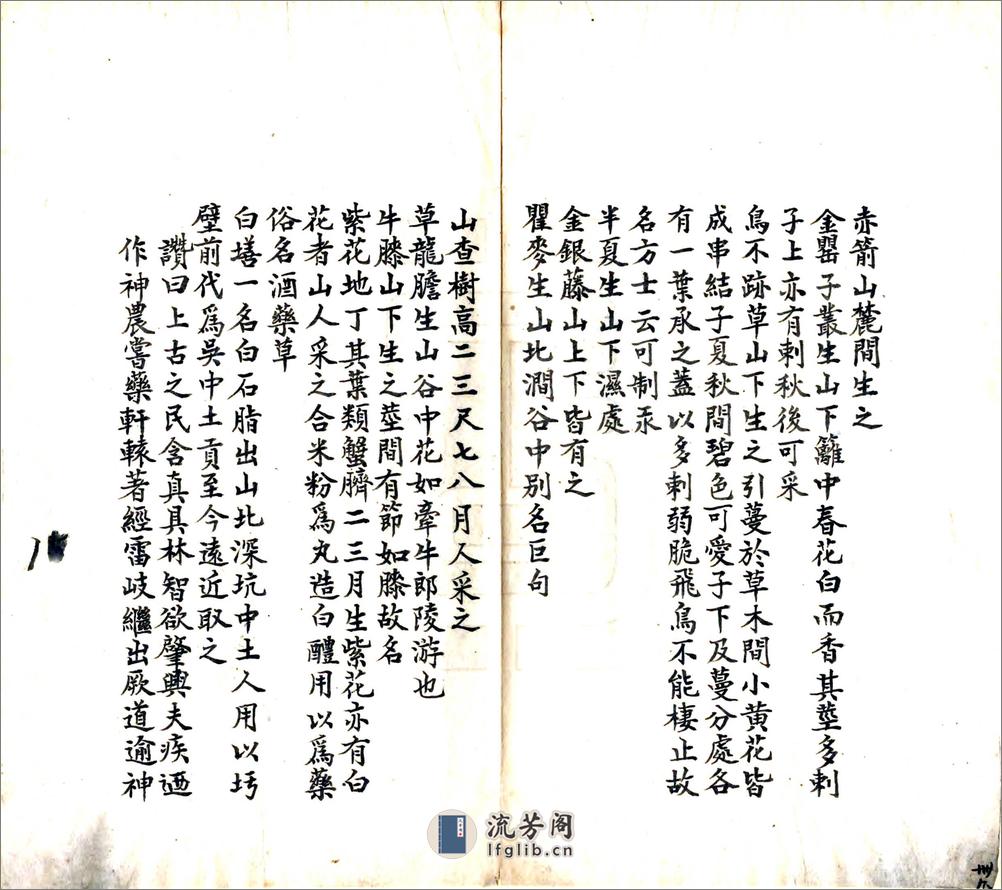 赤箭山麓間生之
金罌子叢生山下籬中春花白而香其莖多刺
子上亦有刺秋後可采
鳥不跡草山下生之引蔓於草木間小黄花皆
成串結子夏秋間碧色可愛子下及蔓分處各
有一葉承之蓋以多刺弱脆飛鳥不能棲止故
名方士云可制汞
半夏生山下濕處
金銀藤山上下皆有之
瞿麥生山北澗谷中别名巨句
山查樹高二三尺七八月人采之
草龍膽生山谷中花如牽牛郎陵游也
牛膝山下生之莖間有節如膝故名
紫花地丁其葉類蟹臍二三月生紫花亦有白
花者山人采之合米粉爲丸造白醴用以爲藥
俗名酒藥草
白墡一名白石脂出山北深坑中土人用以圬
壁前代爲吳中土貢至今遠近取之
讚曰上古之民含真具林智欲肇興夫疾迺
作神農嘗藥軒轅著經雷岐繼出厥道逾神
流芳阁
lfglib.cn